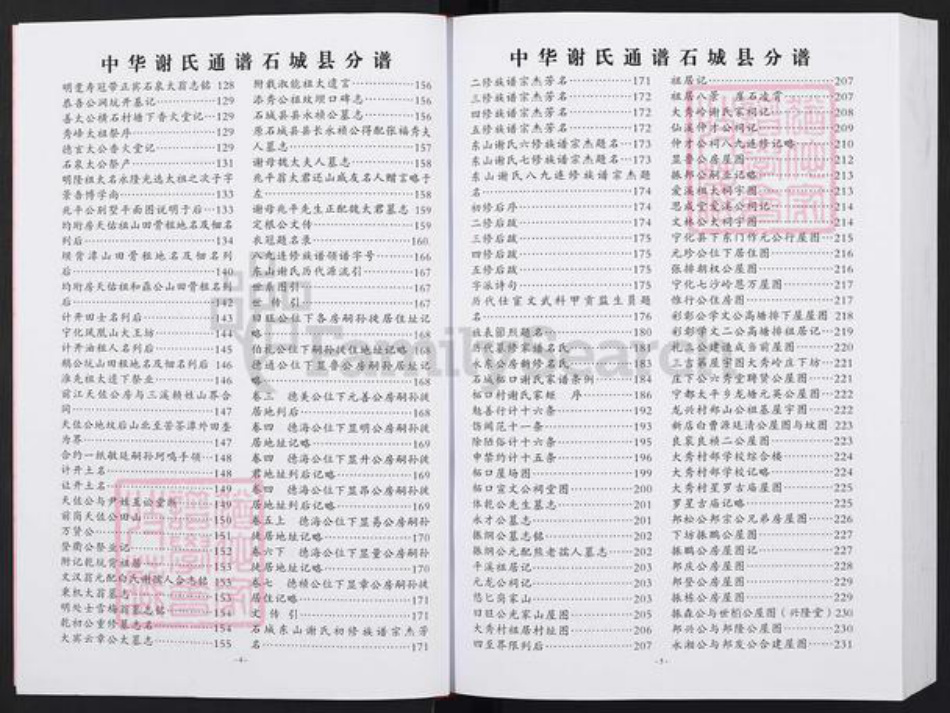 中华谢氏通谱石城县分谱
明雯寿冠带正宾石泉太翁志铭 128
恭吾公洞坑开基记……129
善太公横石村塘下香火堂记…129
秀峰太祖祭序……129
德玄太公香火堂记……129
石泉太公祭产……131
明隆祖大名永隆光选大祖之次子字
景吾博学尚……133
兆平公别墅平面图说明于后…133
均珩房天佑祖山田骨租地名及佃名
列后……134
坝背漳山田骨租地名及佃名列
后……140
均珩房天佑祖和磊公山田骨租名列
后……142
计开田士名列后……143
宁化凤凰山大王坊……144
计开油租人名列后……145
赖公坑山田租地名及细名列后 146
淮先祖太遗下祭业……146
前江天佐公房与三溪赖姓山界合
同……147
天佐公地坟后山北至苦荼漳外田壑
为界……147
合约一纸敏廷嗣孙珂鸣手领…148
计开土名……148
让开土名……149
天佐公与尹姓互讼堂断……149
前岗天佐公田山……150
万贤公……151
登衢公祭业记……152
附记乾坑常租居……153
文汉翁元配白氏谢孺人合志铭 153
东机太翁墓志……153
明处士雪梅翁墓志铭……154
乾初公重修墓志名……154
大宾云章公太墓志……155
附载淑能祖大遗言……156
添秀公祖坟坝口碑志……156
石城县县永祯公墓志……156
原石城县县长永祯公得配张福秀夫
人墓志……157
谢母魏大夫人墓志……158
兆平翁太君还山戚友名人赠言略于
左……158
谢母兆平先生正配魏大君墓志 159
定根公文传……159
衣冠题名录……160
八九连修族谱领谱字号……166
东山谢氏历代源流引……167
世系图引……167
世 传 引……167
日旺公位下各房嗣孙徙居住址记
略……168
伯礼公位下嗣孙徙住地址记略 168
德通公位下显鲁公房嗣孙居址记
……168
卷三 德美公位下元善公房嗣孙徙
居地列后……168
卷四 德海公位下显明公房嗣孙徙
居地址记略……169
卷四 德海公位下显升公房嗣孙徙
君地址列后记略……169
卷四 德海公位下显昂公房嗣孙徙
居地址列后记略……169
卷五上 德海公位下显易公房嗣孙
徙居地址记略……170
卷六下 德海公位下显量公房嗣孙
徙居地址记略……170
卷七 德桢公位下显章公房嗣孙徙
居住记略……171
文 传 引……171
石城东山谢氏初修族谱宗杰芳
名……171
-4-
中华谢氏通谱石城县分谱
二修族谱宗杰芳名……171
三修族谱宗杰芳名……172
四修族谱宗杰芳名……172
五修族谱宗杰芳名……172
东山谢氏六修族谱宗杰题名…173
东山谢氏七修族谱宗杰题名…173
东山谢氏八九连修族谱宗杰题
名……174
初修后序……174
二修后跋……174
三修后跋……175
四修后跋……175
五修后跋……175
字派诗句……175
历代仕宦文武科甲贡监生员题
名……176
族表节烈题名……180
历代募修家谱名氏……181
永东公房榭修名氏……183
石城柘口谢氏家谱条例……184
柘口村谢氏家矩 序……186
勉善行计十六条……192
伤闻范十一条……193
除陋俗计十六条……195
申禁约计十五条……196
柘口屋场图……199
柘口宣文公祠堂图……200
体乾公先生墓志……201
永才公墓志……201
振纲公墓志铭……202
振纲公元配熊老孺人墓志……202
平溪祖居记……203
元龙公祠记……203
悠匕岗家山……203
日旺公光家山屋图……205
大秀村祖居村址图……206
四至界限列后……207
祖居记……207
祖居八景 崖石凌霄……207
大秀岭谢氏家祠记……208
仙溪仲才公祠记……209
仲才公祠八九连修记略……210
显鲁公房屋图……212
振邦公嗣业记略……213
爱溪祖大祠宇图……213
思成堂爱溪公祠记……214
文林公大祠宇图……214
宁化县下东门作元公行屋图…215
元珍公位下居住图……216
张排朝权公屋图……216
宁化七沙岭思万屋图……217
惟行公住房图……217
彩彰公学文公高塘排下屋屋图 218
彩彰学文二公高塘排祖居记…219
礼三公建造成当前屋图……220
三古第屋宇图大秀岭庄下坊…221
庄下公六秀堂聘贤公屋图……221
宁都太平乡龙塘元英公屋图…222
龙兴村郏山公祖基屋宇图……222
新店白曹源廷清公屋图与坟图 223
良家良横二公屋图……223
大秀村邮学校综合楼……224
大秀村邮学校记略……224
大秀村罗罗古庙屋图……225
罗星古庙记略……225
邦松公邦宗公兄弟房屋图……226
下坊振鹏公屋图……227
振鹏公房屋图记……227
邦庆公房屋图……228
邦登公房屋图……229
振栋公房屋图……229
振森公与世栢公屋图（兴隆堂）230
邦兴公与邦隆公屋图……230
永湘公与邦发公合建屋图……231
-5-
FamilySearch